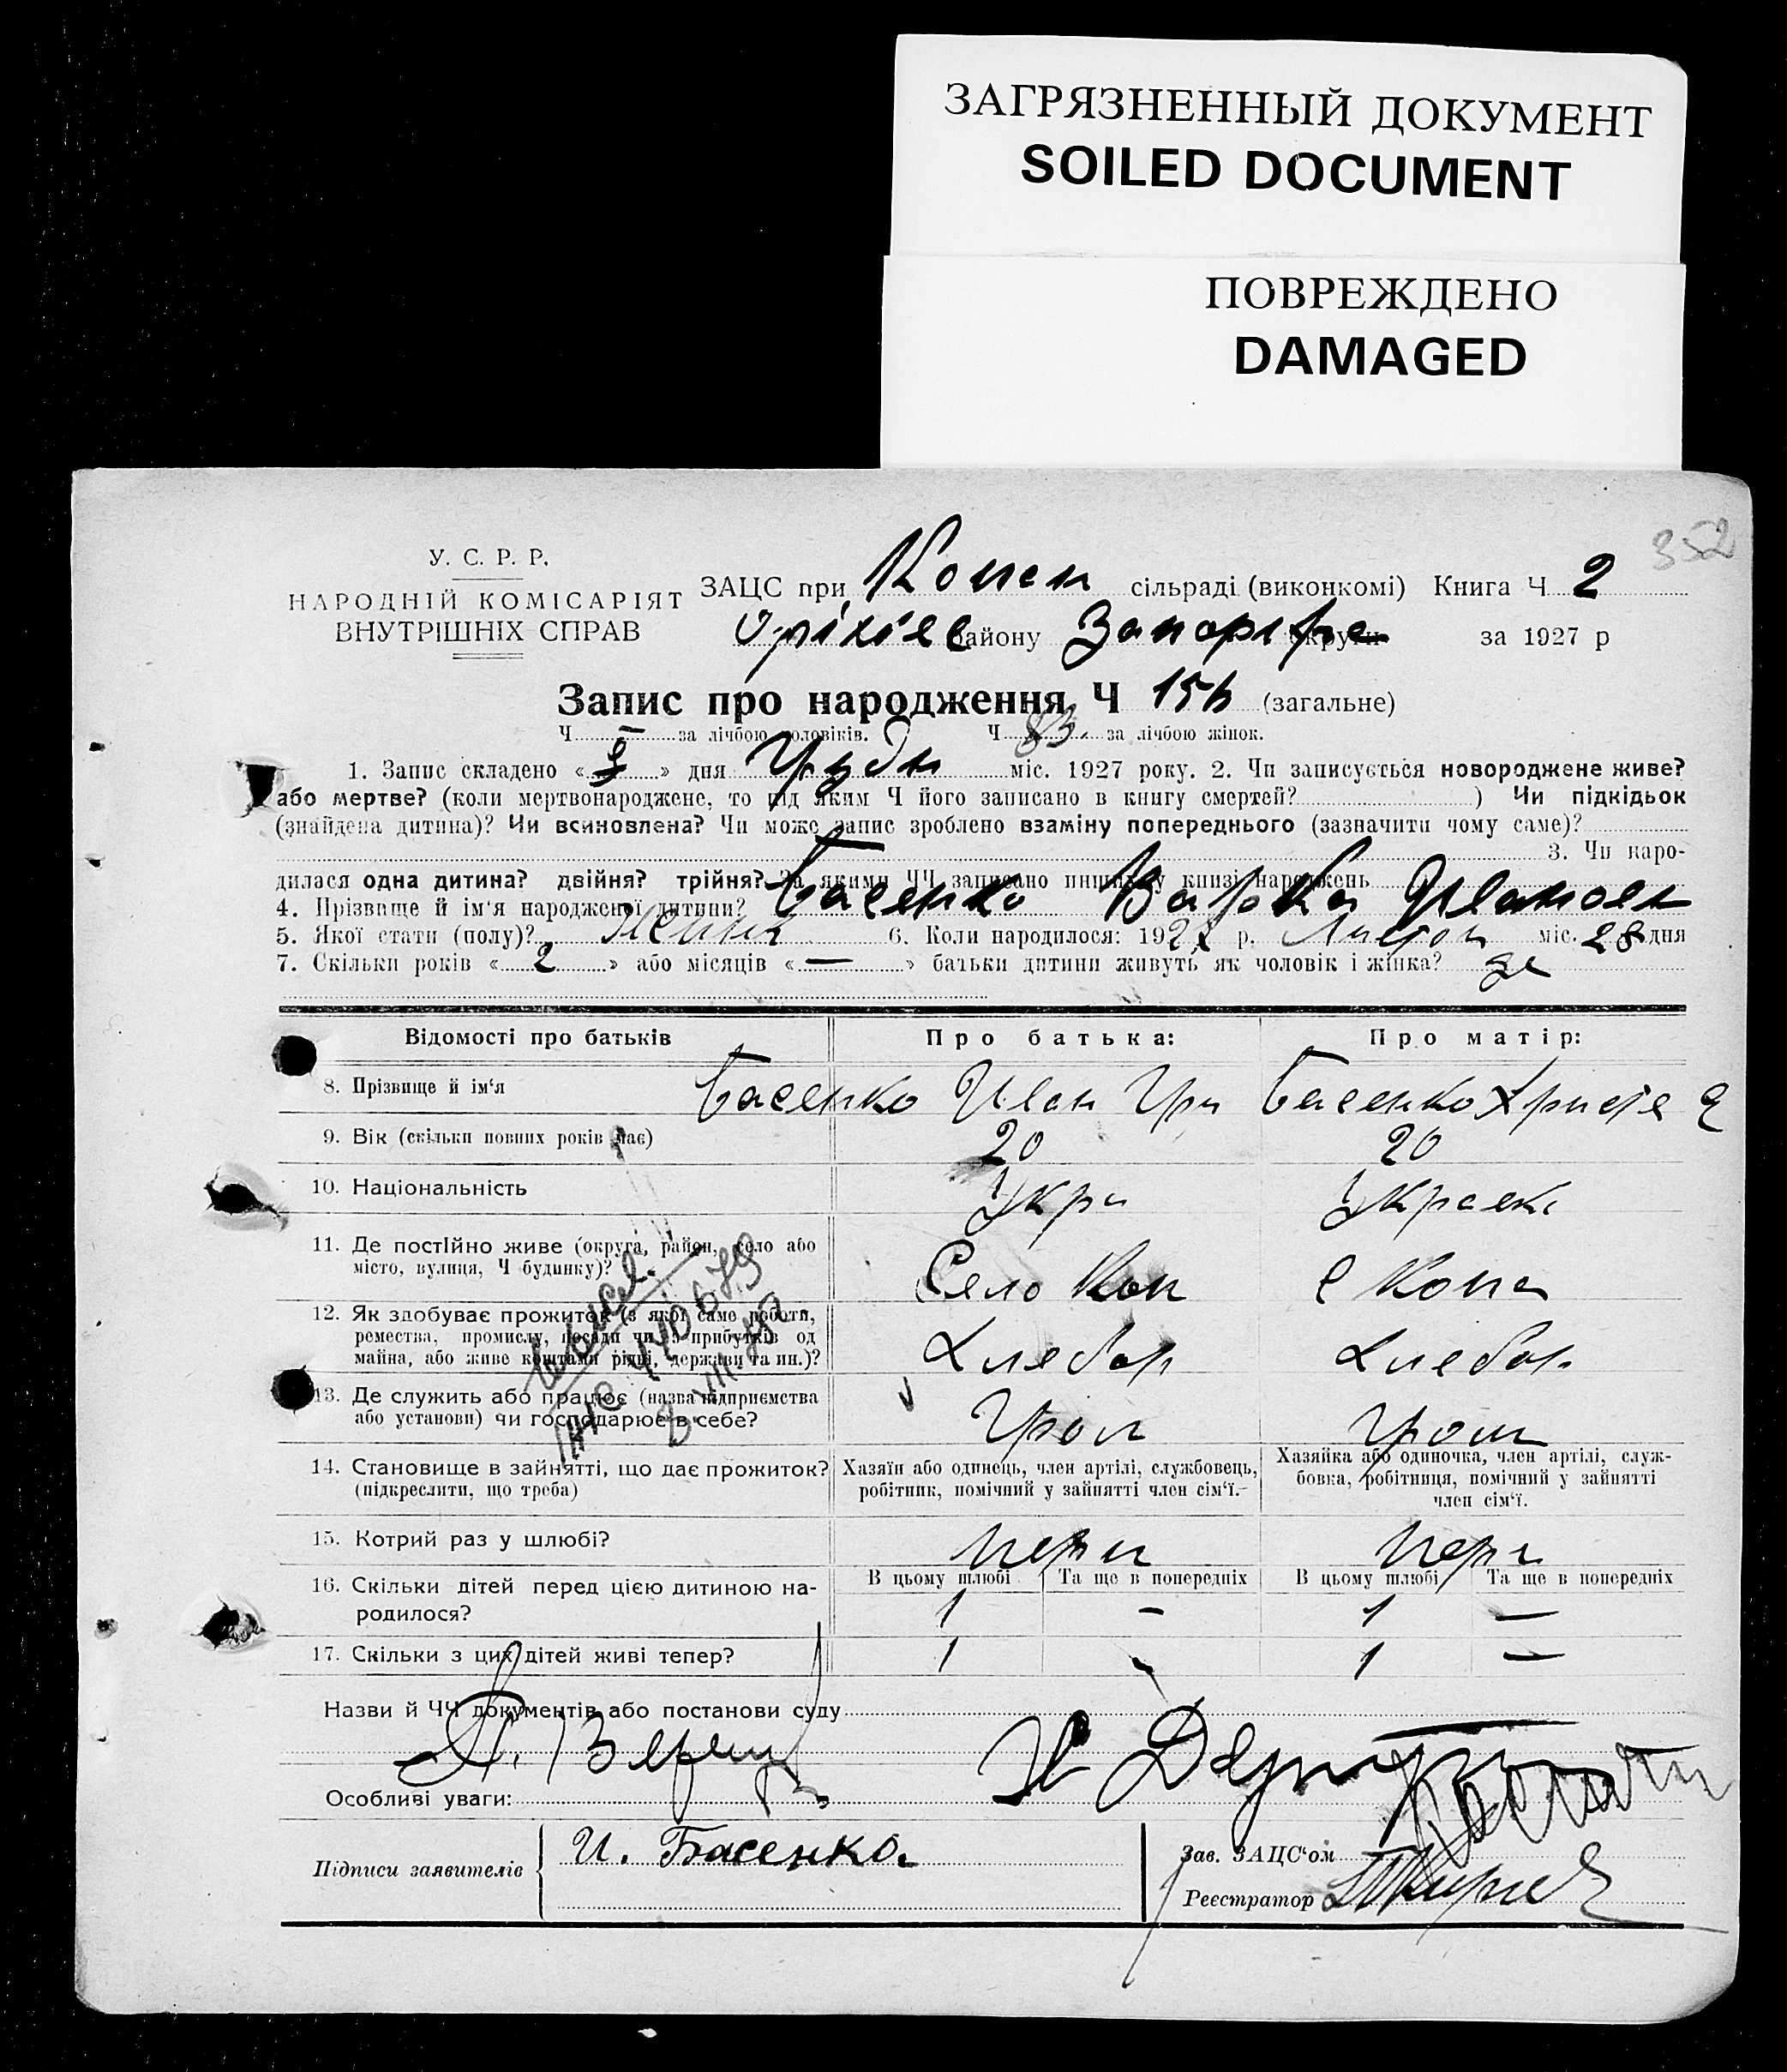 ЗАГРЯЗНЕННЫЙ ДОКУМЕНТ
SOILED DOCUMENT
ПОВРЕЖДЕНО
DAMAGED
352
У. С. Р. Р.
НАРОДНІЙ КОМІСАРІЯТ
ВНУТРІШНІХ СПРАВ
ЗАЦС при Копан сільраді (виконкомі) Книга Ч 2
Оріхів району Запоріж округи за 1927 р
Запис про народження Ч (загальне)
Ч — за лічбою чоловіків. Ч 83. за лічбою жінок.
1. Запис складено « » дня Грудн міс. 1927 року. 2. Чи записується новороджене живе?
або мертве? (коли мертвонароджене, то під яким Ч його записано в книгу смертей? ) Чи підкідьок
(знайдена дитина)? Чи всиновлена? Чи може запис зроблено взаміну попереднього (зазначити чому саме)?
3. Чи наро-
дилася одна дитина? двійня? трійня? За якими ЧЧ записано инших у книзі народжень
4. Прізвище й ім'я народженої дитини? Басенко Варка Иванов
5. Якої стати (полу)? Жінк 6. Коли народилося: 1927 р. Листоп міс. 28 дня
7. Скільки років « 2 » або місяців « — » батьки дитини живуть як чоловік і жінка?
Відомості про батьків Про батька: Про матір:
8. Прізвище й ім'я Басенко Иван Гри Басенко Христя
9. Вік (скільки повних років має) 20 20
10. Національність Укра Украек
11. Де постійно живе (округа, район, село або
місто, вулиця, Ч будинку)? Село Коп С Копа
12. Як здобуває прожиток (з якої саме роботи,
ремества, промислу, посади чи з прибутків од
майна, або живе коштами рідні, держави та ин.)? Хлебор Хлебор
13. Де служить або працює (назва підприємства
або установи) чи господарює в себе?
14. Становище в зайнятті, що дає прожиток?
(підкреслити, що треба)
Хазяїн або одинець, член артілі, службовець,
робітник, помічний у зайнятті член сім'ї.
Хазяйка або одиночка, член артілі, служ-
бовка, робітниця, помічний у зайнятті
член сім'ї.
15. Котрий раз у шлюбі? перш перш
16. Скільки дітей перед цією дитиною на-
родилося?
В цьому шлюбі Та ще в попередніх В цьому шлюбі Та ще в попередніх
1 — 1 —
17. Скільки з цих дітей живі тепер? 1 - 1 —
Назви й ЧЧ документів або постанови суду
Особливі уваги:
Підписи заявителів И. Басенко.
Зав. ЗАЦС'ом
Реєстратор